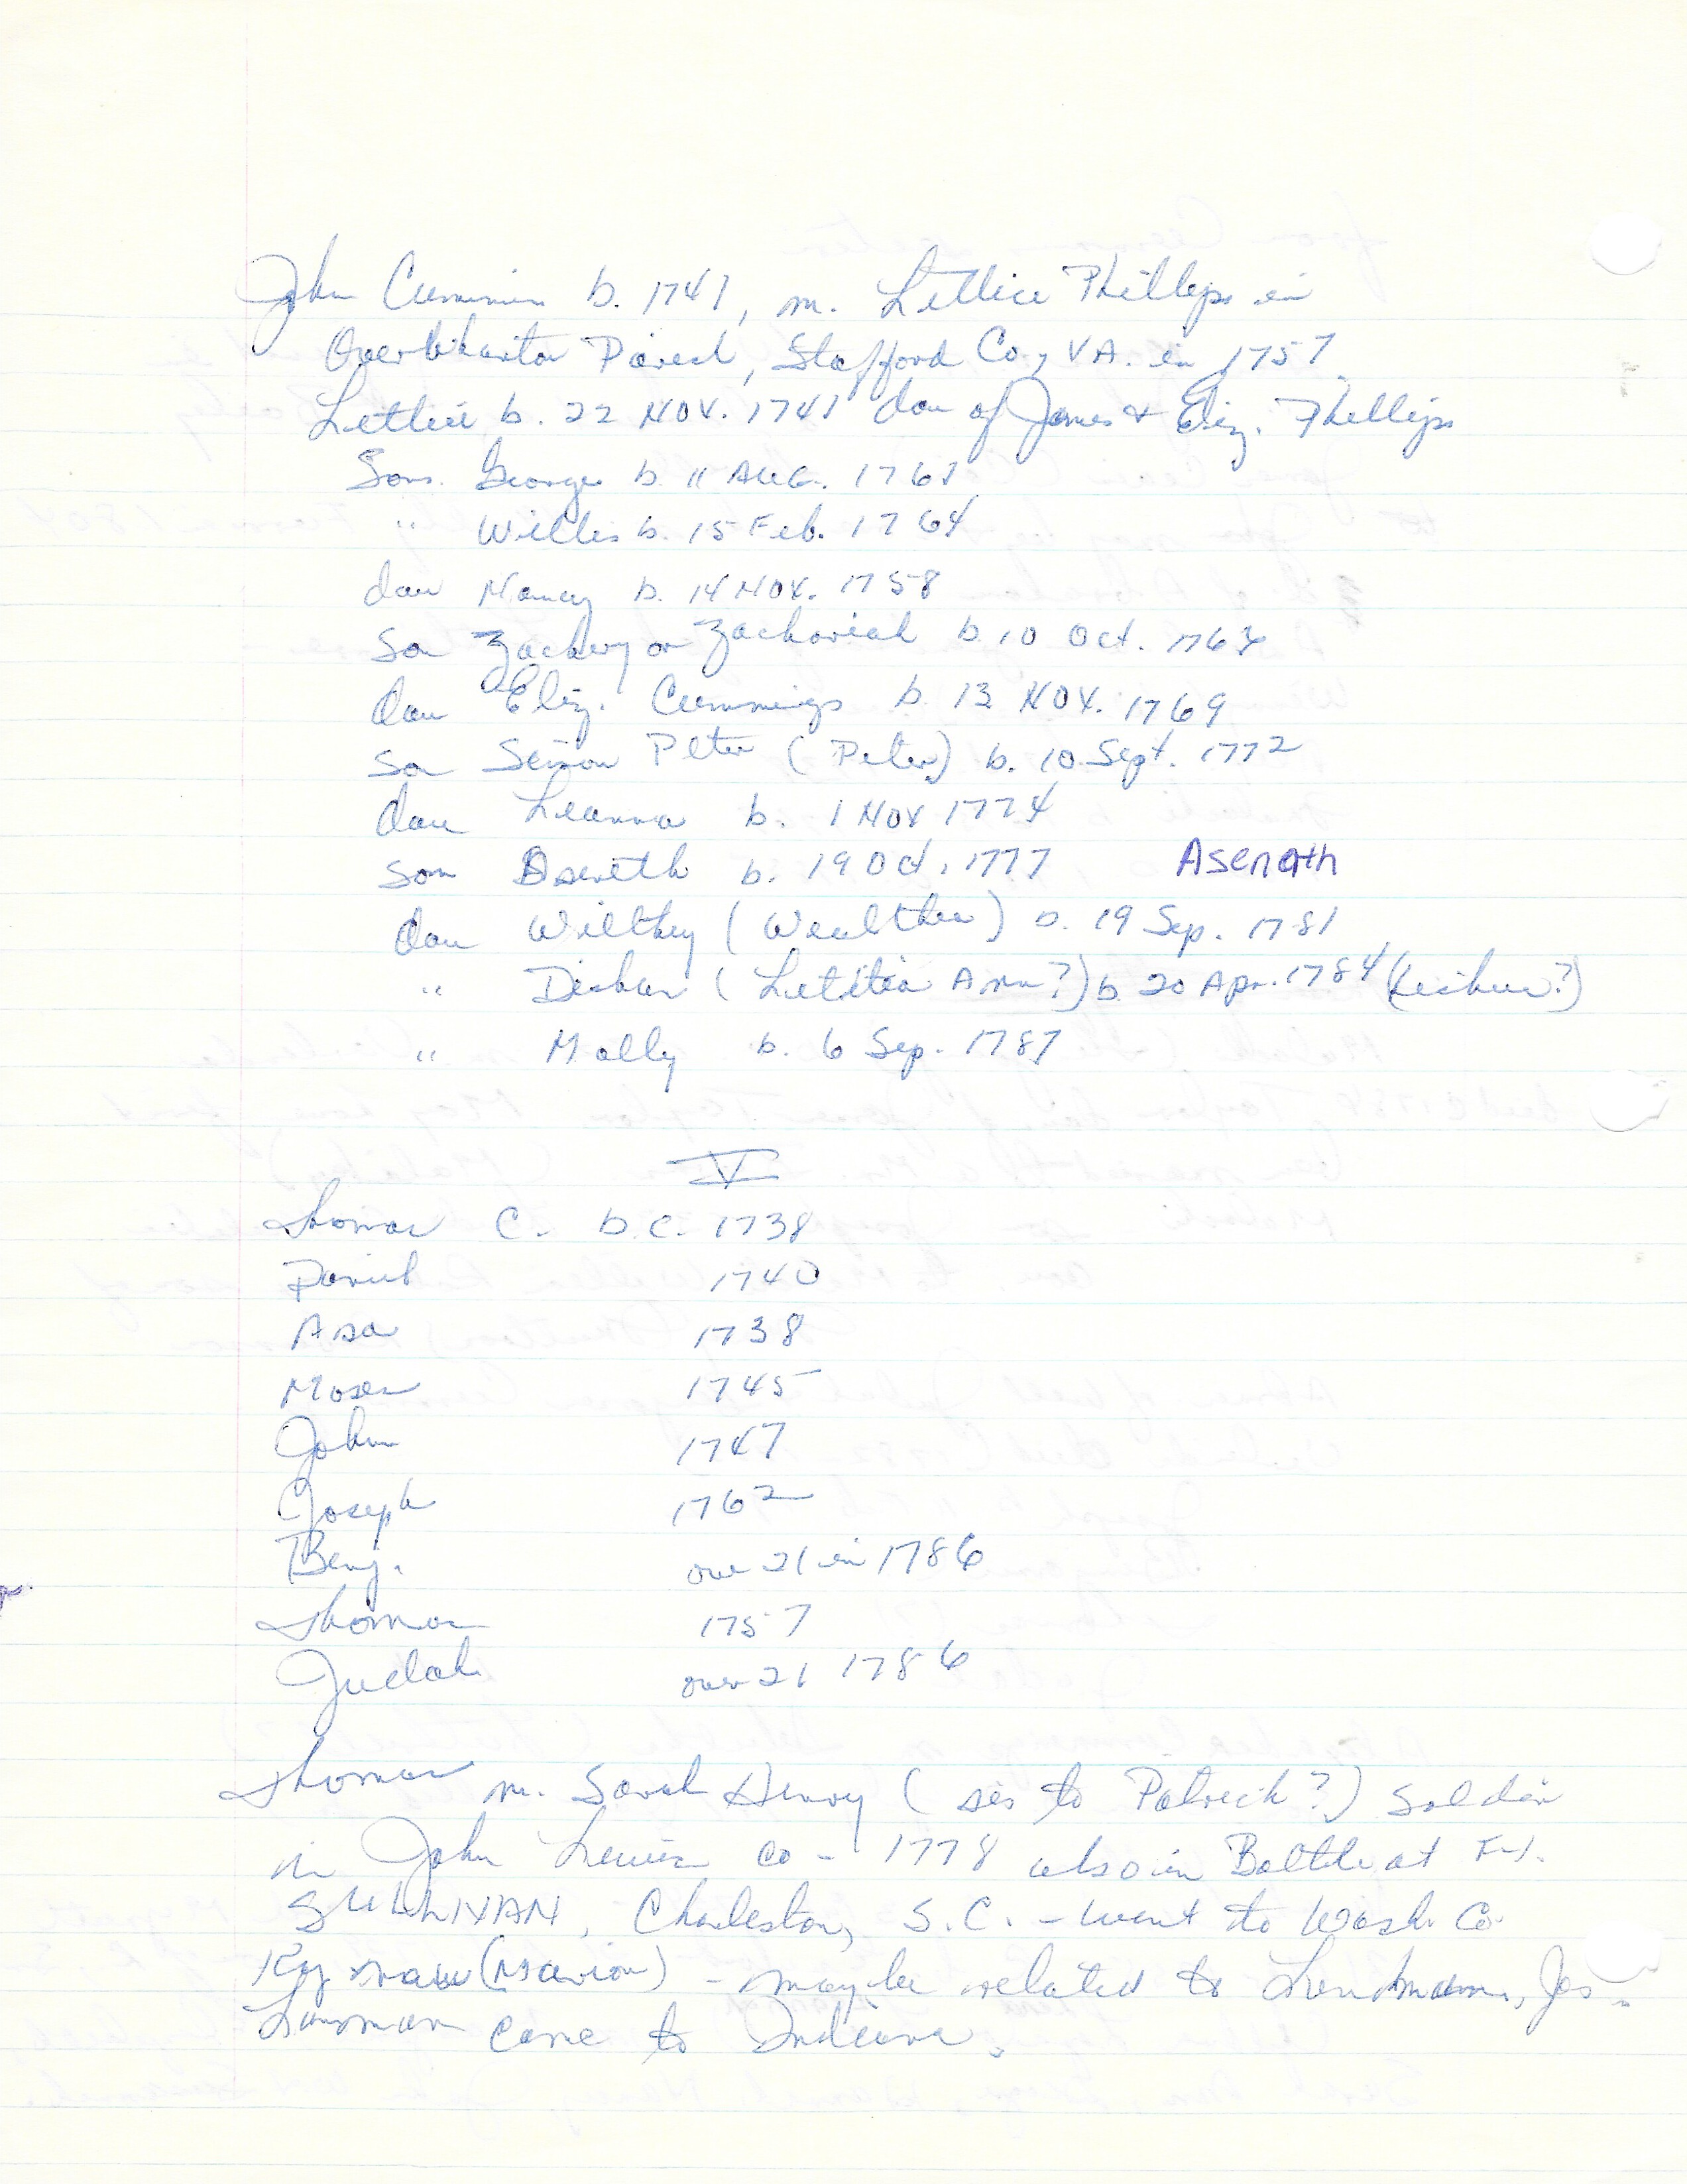 John Cummin b. 1741, m. Lettice Phillips in
Overwharton Parish, Stafford Co., VA. in 1757.
Lettice b. 22 NOV. 1741 dau of James & Eliz. Phillips
Son. George b. 11 AUG. 1761
" Willis b. 15 Feb. 1764
dau Nancy b. 14 NOV. 1758
So Zachery or Zachariah b. 10 Oct.
dau Eliz. Cummings b. 13 NOV. 1769
So Simon Peter (Peter) b. 10 Sept. 1772
dau Leanna b. 1 NOV 1774
son Aseneth b. 19 Oct. 1777 Asenath
dau Wilthey (Wealthea) b. 19 Sep. 1781
" (Letitia Ann?) b. 20 Apr. 1784
" Molly b. 6 Sep. 1787
V
Thomas C. b.c. 1738
Daniel 1740
Asa 1738
Moses 1745
John 1747
Joseph 1762
Benj. over 21 in 1786
Thomas 1757
Judah over 21 1786
Thomas m. Sarah Henry (sis to Patrick?) Soldier
in John Lewis Co - 1778 also in Battle at Ft.
SULLIVAN, Charleston, S.C. - went to Wash. Co.
Ky now (Marion) - maybe related to Jos.
came to Indiana.